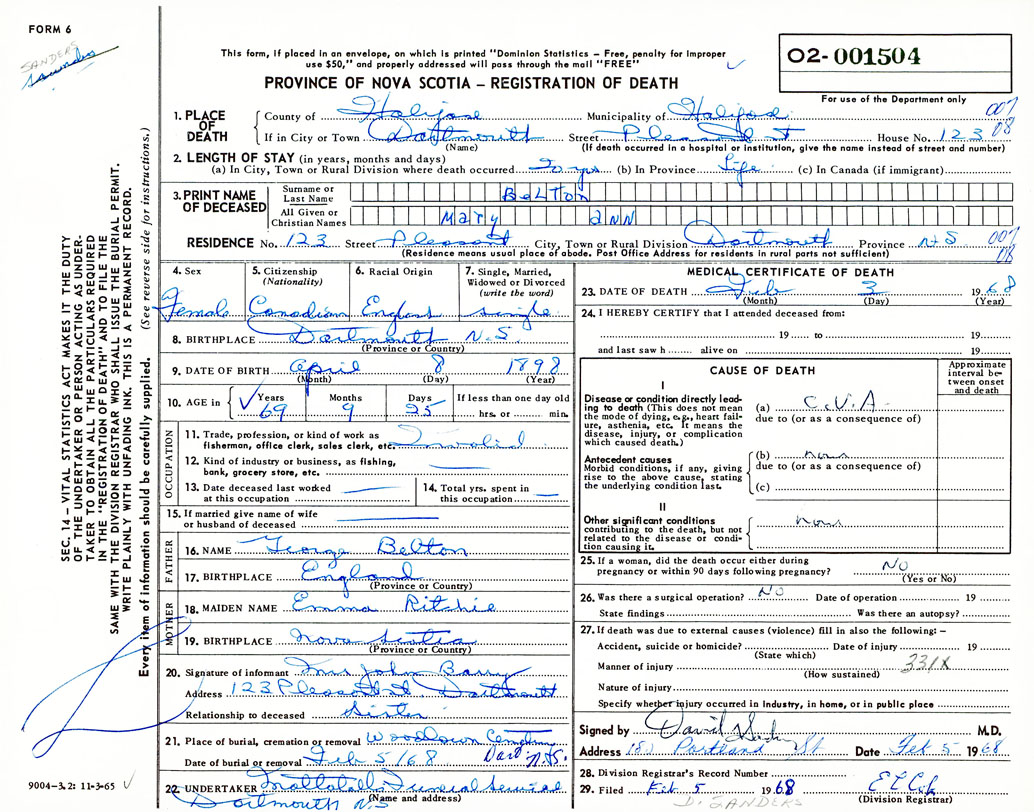 FORM 6
SANDERS
Saunders
This form, if placed in an envelope, on which is printed "Dominion Statistics – Free, penalty for improper
use $50," and properly addressed will pass through the mail "FREE"
PROVINCE OF NOVA SCOTIA – REGISTRATION OF DEATH
02-001504
For use of the Department only
SEC. 14 – VITAL STATISTICS ACT MAKES IT THE DUTY
OF THE UNDERTAKER OR PERSON ACTING AS UNDER-
TAKER TO OBTAIN ALL THE PARTICULARS REQUIRED
IN THE "REGISTRATION OF DEATH" AND TO FILE THE
SAME WITH THE DIVISION REGISTRAR WHO SHALL ISSUE THE BURIAL PERMIT.
WRITE PLAINLY WITH UNFADING INK. THIS IS A PERMANENT RECORD.
Every item of information should be carefully supplied. (See reverse side for instructions.)
1. PLACE OF DEATH
County of Halifax Municipality of Halifax 007
If in City or Town Dartmouth Street Pleasant St House No. 123 08
(Name) (If death occurred in a hospital or institution, give the name instead of street and number)
2. LENGTH OF STAY (in years, months and days)
(a) In City, Town or Rural Division where death occurred (b) In Province Life (c) In Canada (if immigrant)
3. PRINT NAME OF DECEASED
Surname or Last Name BELTON
All Given or Christian Names Mary ANN
RESIDENCE No. 123 Street Pleasant City, Town or Rural Division Dartmouth Province N S 007
(Residence means usual place of abode. Post Office Address for residents in rural parts not sufficient) 08
4. Sex 5. Citizenship (Nationality) 6. Racial Origin 7. Single, Married, Widowed or Divorced (write the word)
Female Canadian England single
8. BIRTHPLACE Dartmouth N.S.
(Province or Country)
9. DATE OF BIRTH April 8 1898
(Month) (Day) (Year)
10. AGE in Years Months Days If less than one day old
69 9 25 hrs. or min.
OCCUPATION
11. Trade, profession, or kind of work as fisherman, office clerk, sales clerk, etc. Invalid
12. Kind of industry or business, as fishing, bank, grocery store, etc.
13. Date deceased last worked at this occupation
14. Total yrs. spent in this occupation
15. If married give name of wife or husband of deceased
FATHER
16. NAME George Belton
17. BIRTHPLACE England
(Province or Country)
MOTHER
18. MAIDEN NAME Emma Ritchie
19. BIRTHPLACE Nova Scotia
(Province or Country)
20. Signature of informant Mrs John Barry
Address 123 Pleasant St Dartmouth
Relationship to deceased Sister
21. Place of burial, cremation or removal Woodlawn Cemetery
Date of burial or removal Feb 5/68 Dart N.S.
22. UNDERTAKER Mattatall Funeral Service
Dartmouth N S (Name and address)
9004-3.2: 11-3-65
MEDICAL CERTIFICATE OF DEATH
23. DATE OF DEATH Feb 3 1968
(Month) (Day) (Year)
24. I HEREBY CERTIFY that I attended deceased from:
19 to 19
and last saw h alive on 19
CAUSE OF DEATH
Approximate interval between onset and death
I
Disease or condition directly leading to death (This does not mean the mode of dying, e.g., heart failure, asthenia, etc. It means the disease, injury, or complication which caused death.)
(a) C.V.A.
due to (or as a consequence of)
Antecedent causes
Morbid conditions, if any, giving rise to the above cause, stating the underlying condition last.
(b) none
due to (or as a consequence of)
(c)
II
Other significant conditions contributing to the death, but not related to the disease or condition causing it.
none
25. If a woman, did the death occur either during pregnancy or within 90 days following pregnancy? NO
(Yes or No)
26. Was there a surgical operation? NO Date of operation 19
State findings Was there an autopsy?
27. If death was due to external causes (violence) fill in also the following: –
Accident, suicide or homicide? Date of injury 19
(State which)
Manner of injury 331X
(How sustained)
Nature of injury
Specify whether injury occurred in Industry, in home, or in public place
Signed by David M.D.
Address Portland St Date Feb 5 1968
28. Division Registrar's Record Number
29. Filed Feb 5 1968
(Division Registrar)
D. SANDERS